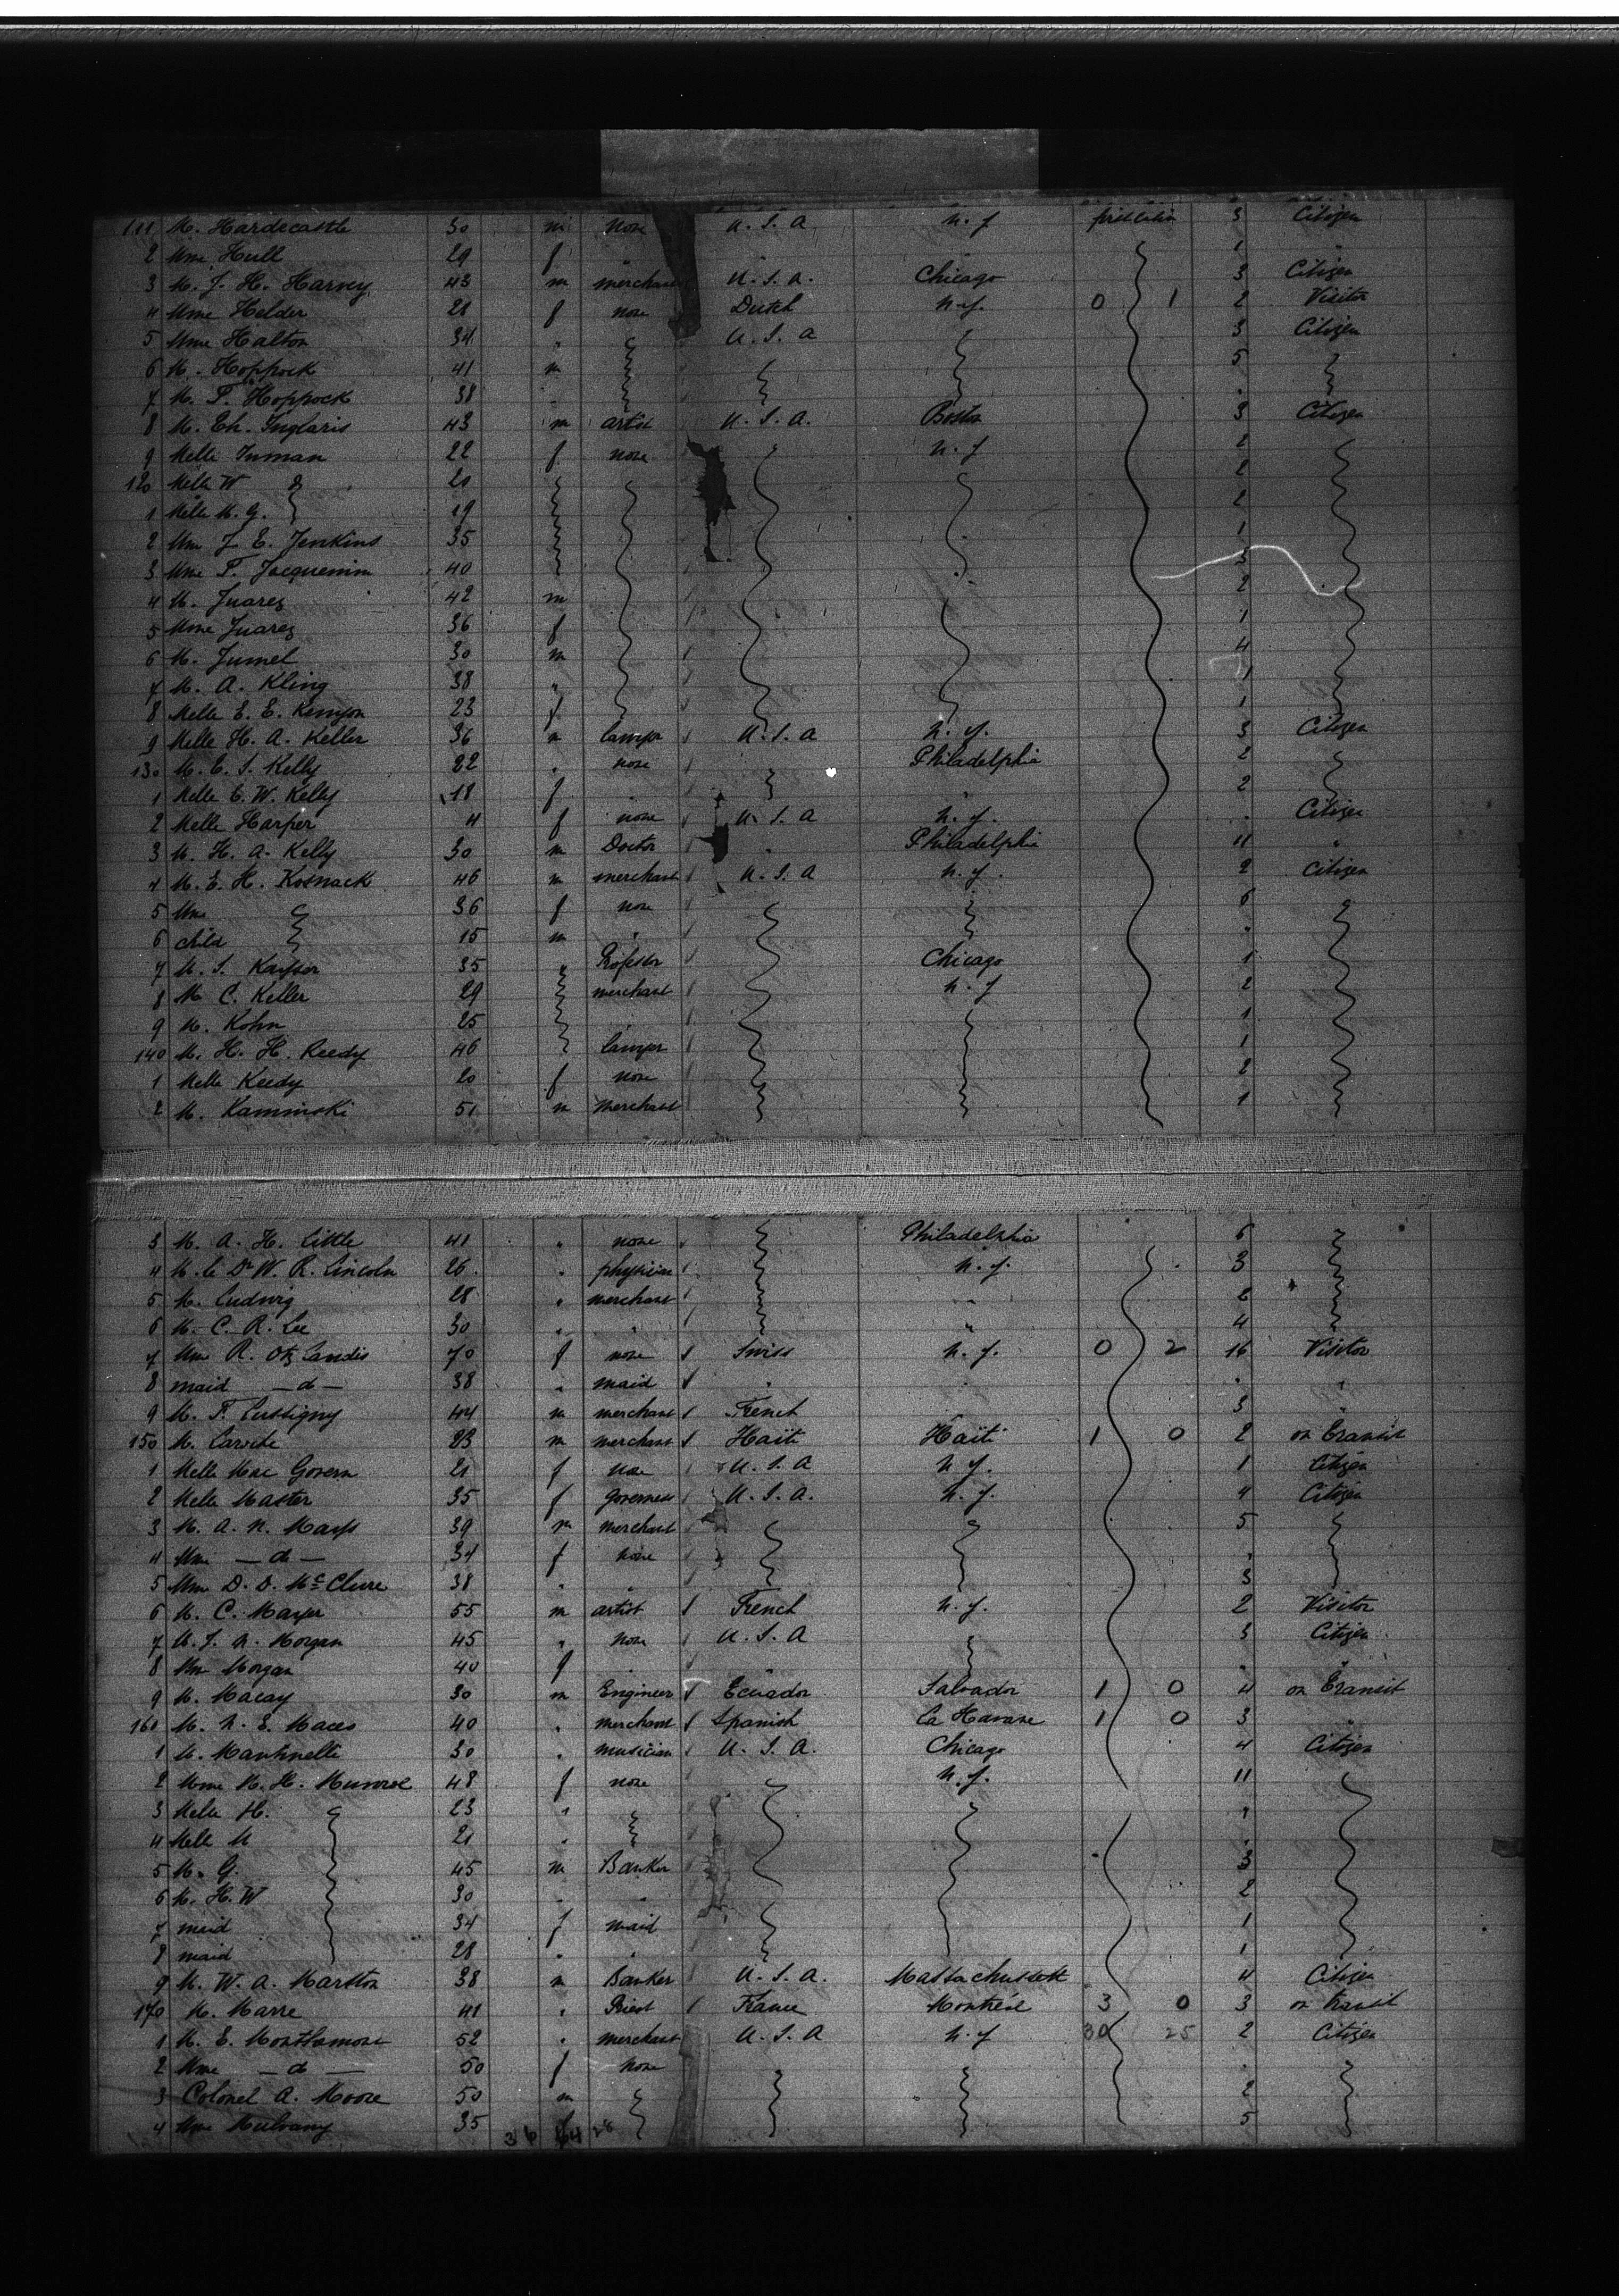 111 M. Hardecastle 30 m none U.S.A n.y first cabin 3 Citizen
2 Mme Hull 29 f " " 1 "
3 M. J. H. Harvey 43 m merchant U.S.A. Chicago 3 Citizen
4 Mme Helder 28 f none Dutch n.y. 0 1 2 Visitor
5 Mme Halton 34 " U.S.A 3 Citizen
6 M. Hoppock 41 m 5
7 M. F. Hoppock 38 "
8 M. Ch. Inglaris 43 m artist U.S.A. Boston 3 Citizen
9 Melle Inman 22 f none n.y 2
120 Melle W d 20 2
1 Melle M. G. 19 2
2 Mme J. E. Jenkins 35 1
3 Mme F. Jacquemin 40 3
4 M. Juarez 42 m 2
5 Mme Juarez 36 f 1
6 M. Jumel 30 m 4
7 M. A. Kling 38 " 1
8 Melle E. E. Kenyon 23 f 1
9 Melle H. A. Keller 36 m lawyer U.S.A n.y. 3 Citizen
130 M. C. S. Kelly 22 " none Philadelphia 2
1 Melle C. W. Kelly 18 f " " 2
2 Melle Harper 4 f none U.S.A n.y. " Citizen
3 M. H. A. Kelly 30 m Doctor " Philadelphi 11 "
4 M. E. H. Kosnack 46 m merchant U.S.A n.y. 2 Citizen
5 Mme 36 f none 6
6 child 15 m " "
7 M. S. Kayser 35 " Professor Chicago 1
8 M. C. Keller 29 merchant n.y 2
9 M. Kohn 25 " 1
140 M. H. H. Reedy 46 lawyer 1
1 Melle Keedy 20 f none 2
2 M. Kaminski 51 m merchant 1
3 M. A. H. Little 41 " none Philadelphia 6
4 M. le Dr W. R. Lincoln 26 " physician n.y. 3
5 M. Ludwig 28 " merchant " 2
6 M. C. R. Lee 30 " " " 4
7 Mme R. Otz Landis 70 f none Swiss n.y. 0 2 16 Visitor
8 maid — d — 38 " maid " " " "
9 M. F. Lustigny 44 m merchant French 3 "
150 M. 23 m merchant Haïti Haïti 1 0 2 on transit
1 Melle Mac Govern 21 f none U.S.A n.y. 1 Citizen
2 Melle Master 35 f governess U.S.A. n.y. 4 Citizen
3 M. A. N. Mays 39 m merchant 5
4 Mme — d — 34 f none "
5 Mme D. D. Mc Clure 38 " " 3
6 M. C. Mayer 55 m artist French n.y. 2 Visitor
7 M. J. N. Morgan 45 " none U.S.A 3 Citizen
8 Mme Morgan 40 f " " " "
9 M. Macay 30 m Engineer Ecuador Salvador 1 0 4 on transit
160 M. N. E. Maceo 40 " merchant Spanish La Havane 1 0 3 "
1 M. Mantinelli 30 " musician U.S.A. Chicago 4 Citizen
2 Mme M. H. Munroe 48 f none n.y. 11
3 Melle H. 23 " "
4 Melle M 21 " "
5 M. G. 45 m Banker 3
6 M. H. W 30 " " 2
7 maid 34 f maid 1
8 maid 28 " " 1
9 M. W. A. Marston 38 m Banker U.S.A. Massachussett 4 Citizen
170 M. Marre 41 " Priest France Montréal 3 0 3 on transit
1 M. E. 52 " merchant U.S.A n.y 30 25 2 Citizen
2 Mme — d — 50 f none "
3 Colonel A. Moore 50 m 2
4 Mme Mulvany 35 f 5
36 64 28